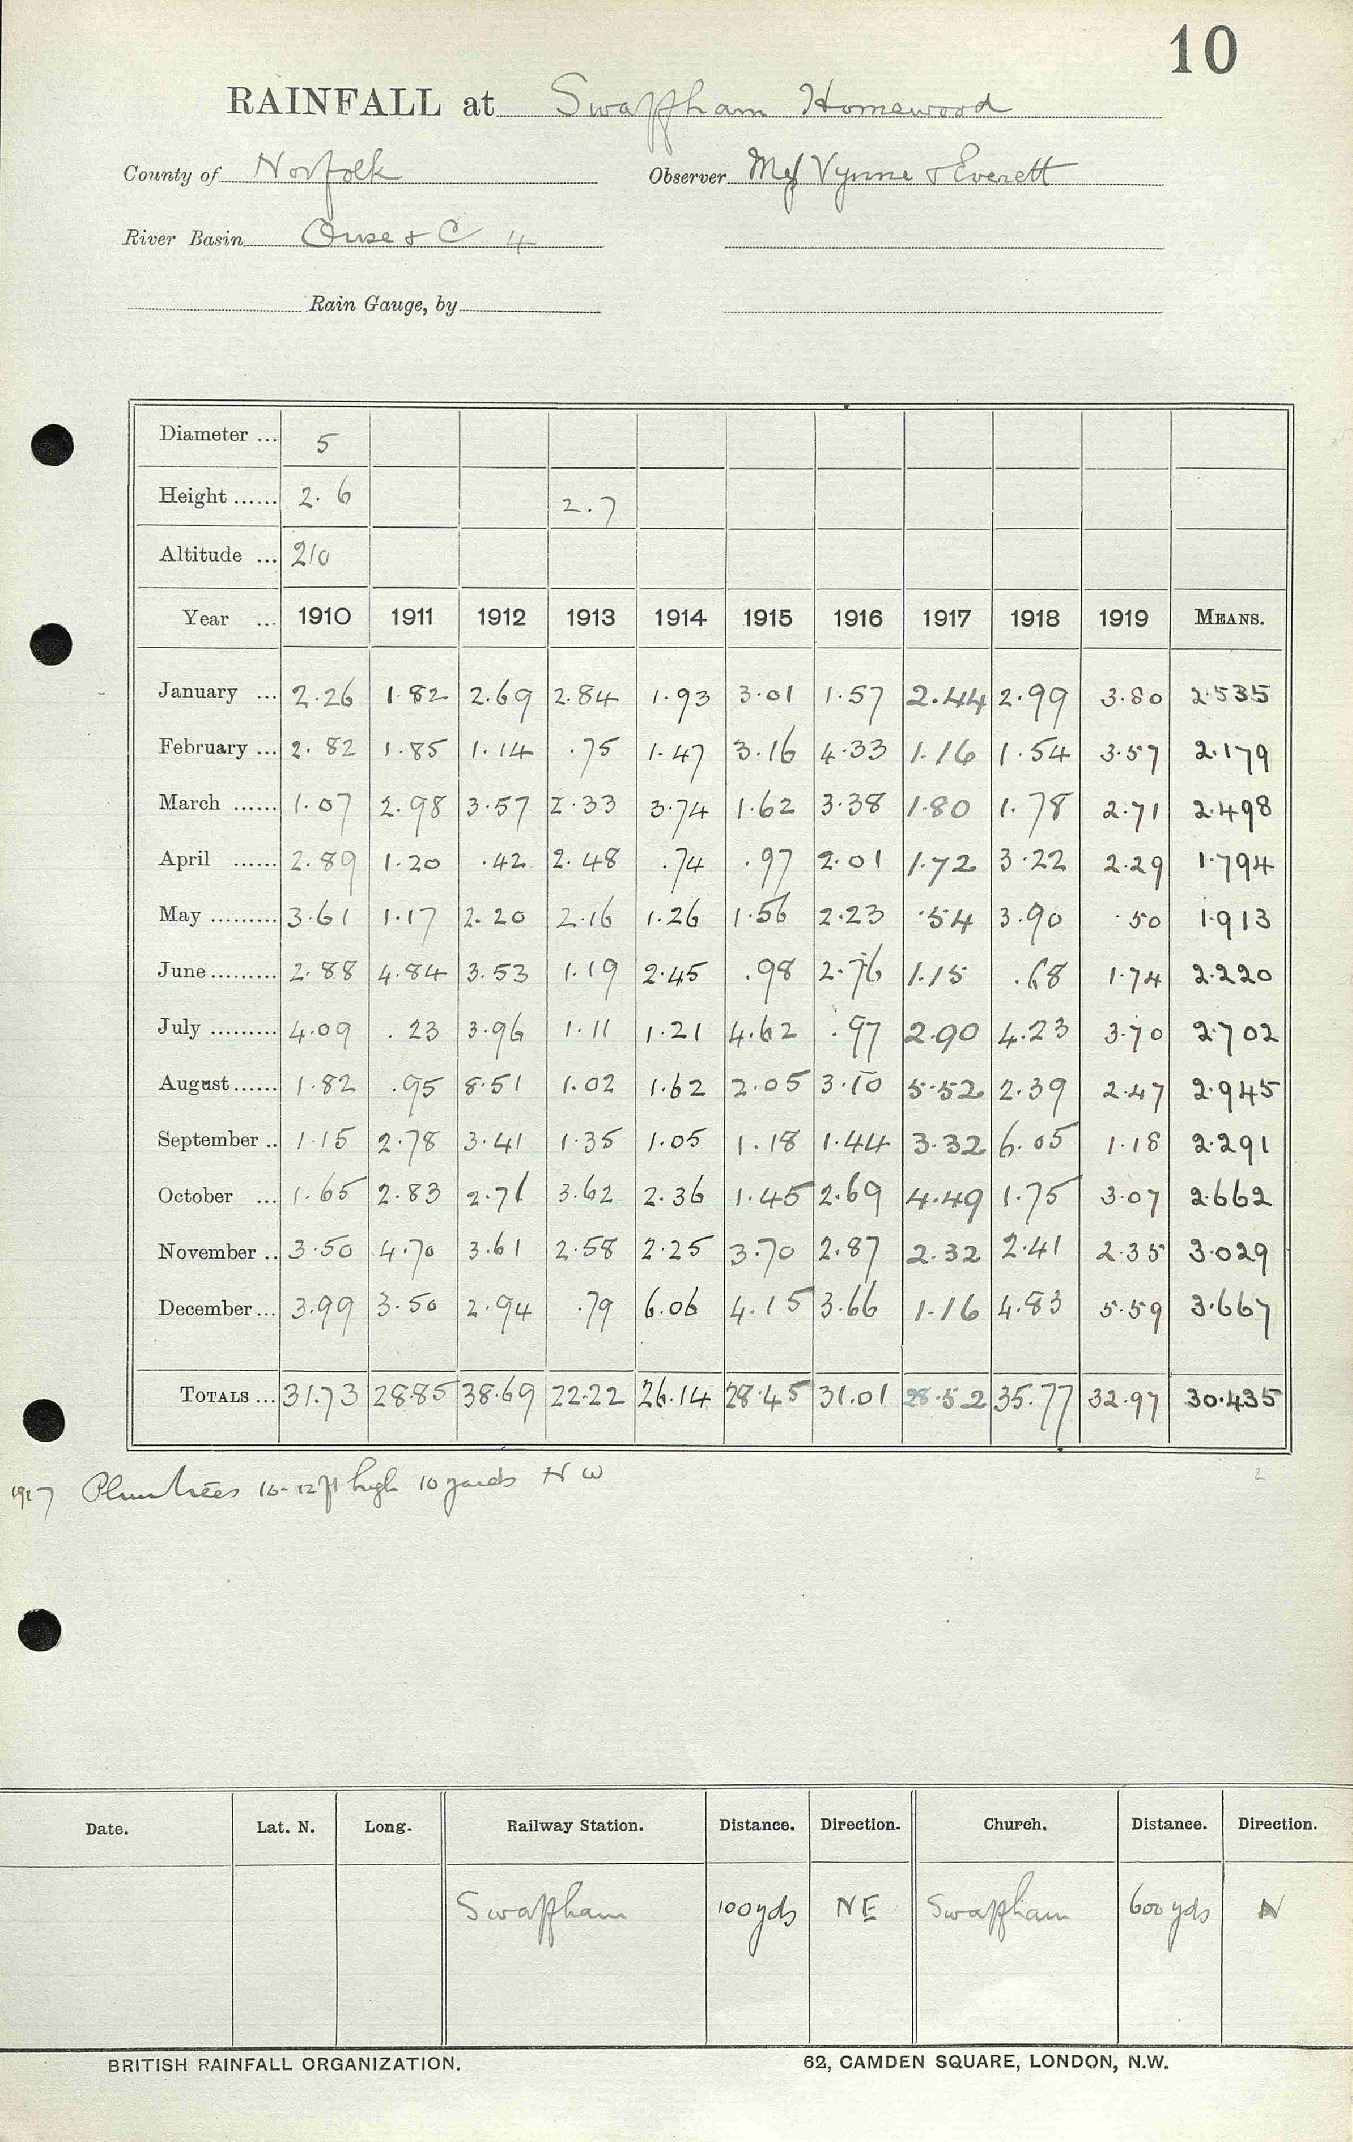 10
RAINFALL at Swaffham Homewood
County of Norfolk Observer Mess Vynne & Everett
River Basin Ouse & C 4
Rain Gauge, by
Diameter ... 5
Height ...... 2.6 2.7
Altitude ... 210
Year ... 1910 1911 1912 1913 1914 1915 1916 1917 1918 1919 MEANS.
January ... 2.26 1.82 2.69 2.84 1.93 3.01 1.57 2.44 2.99 3.80 2.535
February ... 2.82 1.85 1.14 .75 1.47 3.16 4.33 1.16 1.54 3.57 2.179
March ...... 1.07 2.98 3.57 2.33 3.74 1.62 3.38 1.80 1.78 2.71 2.498
April ...... 2.89 1.20 .42 2.48 .74 .97 2.01 1.72 3.22 2.29 1.794
May ......... 3.61 1.17 2.20 2.16 1.26 1.56 2.23 .54 3.90 .50 1.913
June ......... 2.88 4.84 3.53 1.19 2.45 .98 2.76 1.15 .68 1.74 2.220
July ......... 4.09 .23 3.96 1.11 1.21 4.62 .97 2.90 4.23 3.70 2.702
August ...... 1.82 .95 8.51 1.02 1.62 2.05 3.10 5.52 2.39 2.47 2.945
September .. 1.15 2.78 3.41 1.35 1.05 1.18 1.44 3.32 6.05 1.18 2.291
October ... 1.65 2.83 2.71 3.62 2.36 1.45 2.69 4.49 1.75 3.07 2.662
November .. 3.50 4.70 3.61 2.58 2.25 3.70 2.87 2.32 2.41 2.35 3.029
December ... 3.99 3.50 2.94 .79 6.06 4.15 3.66 1.16 4.83 5.59 3.667
TOTALS ... 31.73 28.85 38.69 22.22 26.14 28.45 31.01 28.52 35.77 32.97 30.435
1917 Plum trees 10-12 ft high 10 yards N W 2
Date. Lat. N. Long. Railway Station. Distance. Direction. Church. Distance. Direction.
Swaffham 100 yds NE Swaffham 600 yds N
BRITISH RAINFALL ORGANIZATION. 62, CAMDEN SQUARE, LONDON, N.W.